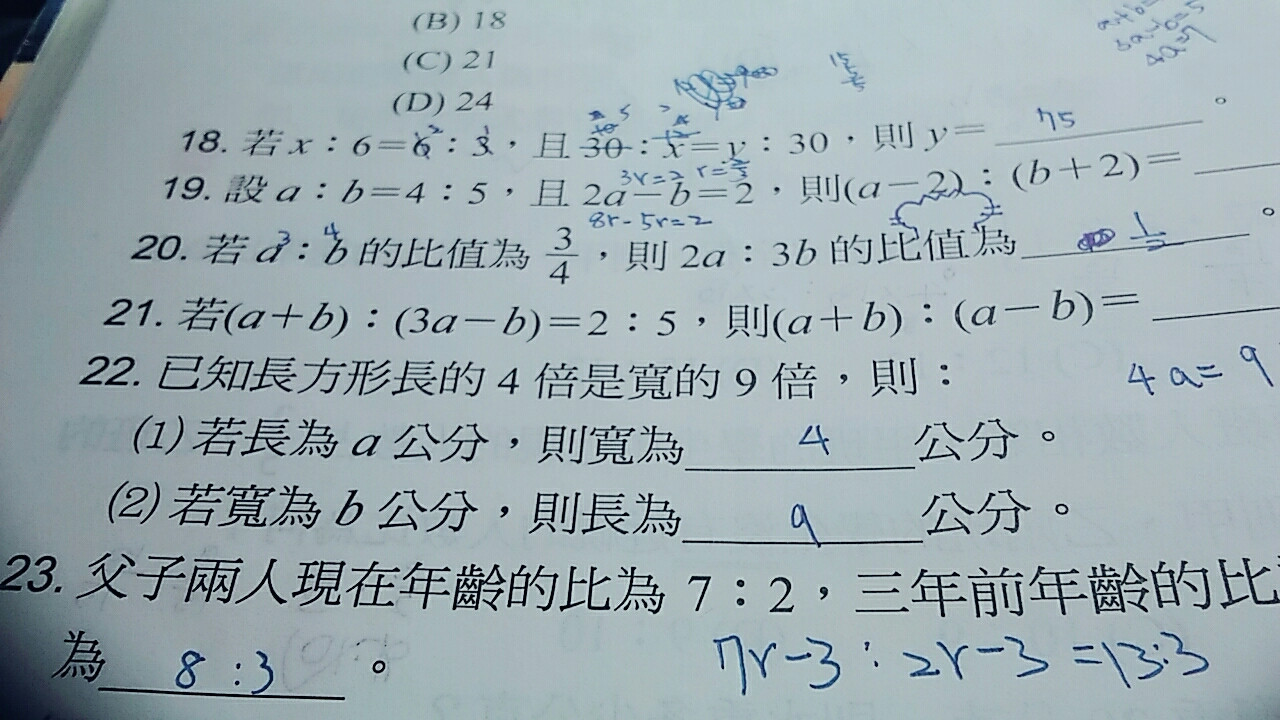 (B) 18
(C) 21
(D) 24
18. 若 x：6＝6：3，且 30：x＝y：30，則 y＝ 75 。
3r=2 r=2/3
19. 設 a：b＝4：5，且 2a－b＝2，則(a－2)：(b＋2)＝
8r-5r=2
20. 若 a：b 的比值為 3/4，則 2a：3b 的比值為 1/2 。
21. 若(a＋b)：(3a－b)＝2：5，則(a＋b)：(a－b)＝
22. 已知長方形長的 4 倍是寬的 9 倍，則：
4a=9
(1) 若長為 a 公分，則寬為 4 公分。
(2) 若寬為 b 公分，則長為 9 公分。
23. 父子兩人現在年齡的比為 7：2，三年前年齡的比
為 8:3 。
7r-3:2r-3=13:3